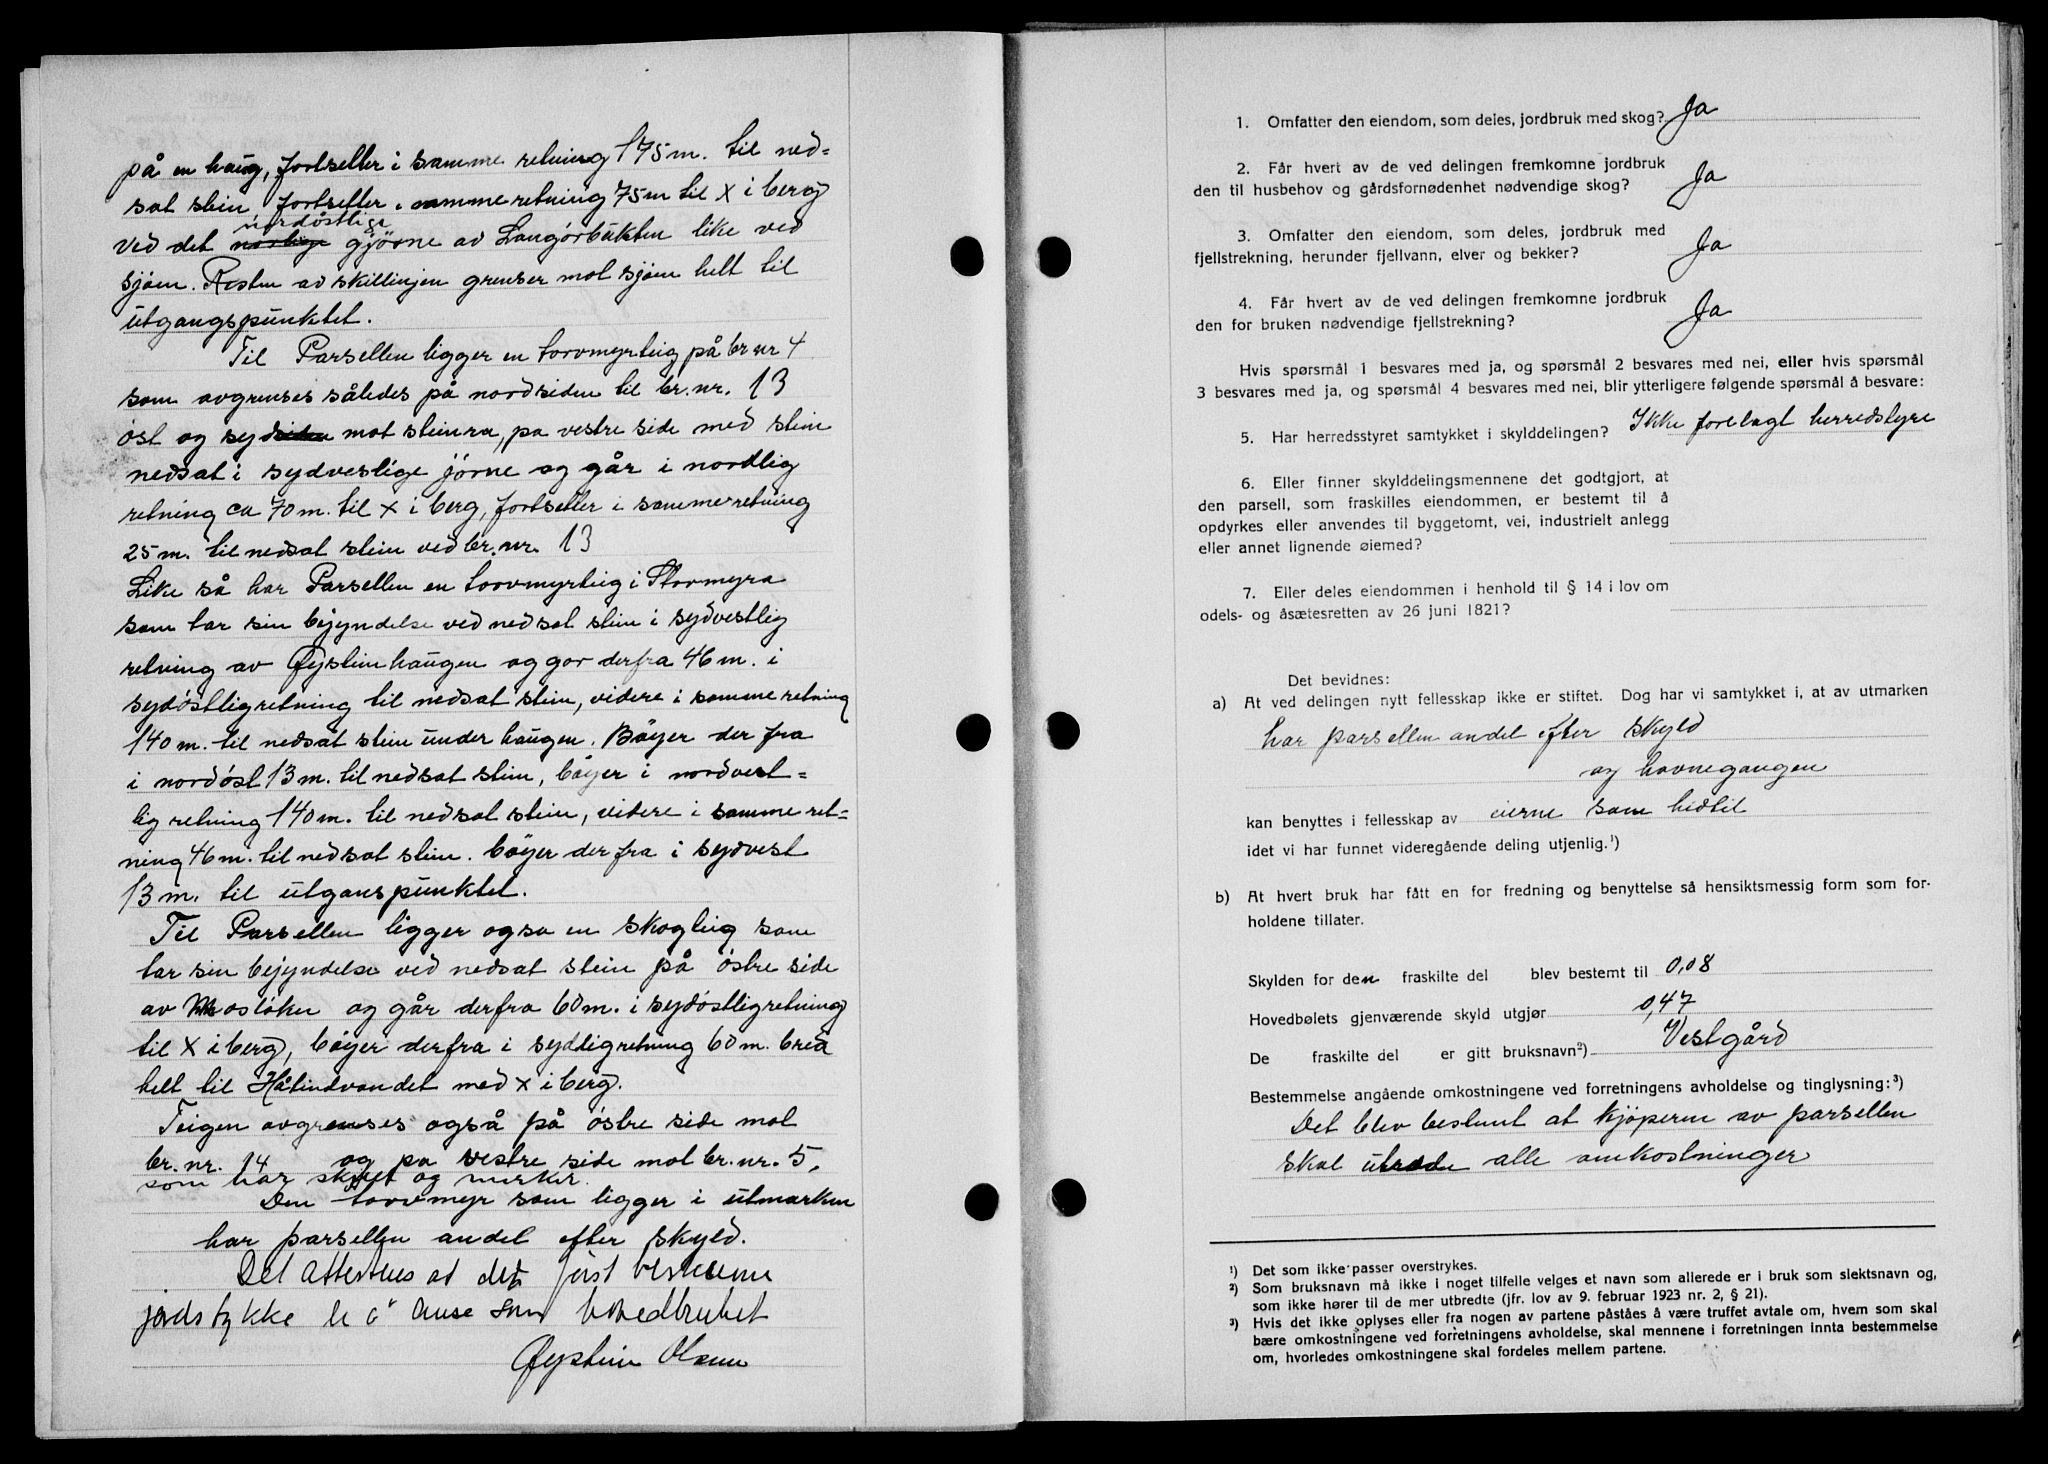 på en haug, fortsetter i samme retning 175 m. til ned=
sat stein fortsetter i samme retning 75 m til X i berg
nordöstlige
ved det norlige gjörne av Langörbukten like ved
sjöen. Resten av skillinjen grenser mot sjöen helt til
utgangspunktet.
Til Parsellen ligger en torvmyrteig på br nr 4
som avgrenses således på nordsiden til br. nr. 13
öst og sydsiden mot steinra, pa vestre side med stein
nedsat i sydveslige jörne og går i nordlig
retning ca 70 m. til X i berg, fortsetter i samme retning
25 m. til nedsat stein ved br. nr. 13
Like så har Parsellen en torvmyrteig i Stormyra
som tar sin bejyndelse ved nedsat stein i sydvestlig
retning av Øysteinhaugen og gor derfra 46 m. i
sydöstlig retning til nedsat stein, videre i samme retning
140 m. til nedsat stein under haugen. Böyer der fra
i nordöst 13 m. til nedsat stein, böyer i nordvest=
lig retning 140 m. til nedsat stein, videre i samme ret=
ning 46 m. til nedsat stein. böyer der fra i sydvest
13 m. til utganspunktet.
Til Parsellen ligger ogsa en skogteig som
tar sin bejyndelse ved nedsat stein på östre side
av Mosloken og går derfra 60 m. i sydöstlig retning
til X i berg, böyer derfra i sydlig retning 60 m. bred
helt til Håtindvandet med x i berg.
Teigen avgrenses også på östre side mot
br. nr. 14 og pa vestre side mot br. nr. 5,
som har skifet og merker.
Den torvmyr som ligger i utmarken
har parsellen andel efter skyld.
Det attesteres at det först beskrevne
jordstykke er å anse som hovedbruket
Øystein Olsen
1. Omfatter den eiendom, som deles, jordbruk med skog? Ja
2. Får hvert av de ved delingen fremkomne jordbruk
den til husbehov og gårdsfornødenhet nødvendige skog? Ja
3. Omfatter den eiendom, som deles, jordbruk med
fjellstrekning, herunder fjellvann, elver og bekker? Ja
4. Får hvert av de ved delingen fremkomne jordbruk
den for bruken nødvendige fjellstrekning? Ja
Hvis spørsmål 1 besvares med ja, og spørsmål 2 besvares med nei, eller hvis spørsmål
3 besvares med ja, og spørsmål 4 besvares med nei, blir ytterligere følgende spørsmål å besvare:
5. Har herredsstyret samtykket i skylddelingen? Ikke forelagt herredstyre
6. Eller finner skylddelingsmennene det godtgjort, at
den parsell, som fraskilles eiendommen, er bestemt til å
opdyrkes eller anvendes til byggetomt, vei, industrielt anlegg
eller annet lignende øiemed?
7. Eller deles eiendommen i henhold til § 14 i lov om
odels- og åsætesretten av 26 juni 1821?
Det bevidnes:
a) At ved delingen nytt fellesskap ikke er stiftet. Dog har vi samtykket i, at av utmarken
har parsellen andel efter skyld
og havnegangen
kan benyttes i fellesskap av eierne som hidtil
idet vi har funnet videregående deling utjenlig.¹)
b) At hvert bruk har fått en for fredning og benyttelse så hensiktsmessig form som for-
holdene tillater.
Skylden for den fraskilte del blev bestemt til 0,08
Hovedbølets gjenværende skyld utgjør 0,47
De fraskilte del er gitt bruksnavn²) Vestgård
Bestemmelse angående omkostningene ved forretningens avholdelse og tinglysning:³)
Det blev bestemt at kjöperen av parsellen
skal utrede alle omkostninger
¹) Det som ikke passer overstrykes.
²) Som bruksnavn må ikke i noget tilfelle velges et navn som allerede er i bruk som slektsnavn og,
som ikke hører til de mer utbredte (jfr. lov av 9. februar 1923 nr. 2, § 21).
³) Hvis det ikke oplyses eller fra nogen av partene påståes å være truffet avtale om, hvem som skal
bære omkostningene ved forretningens avholdelse, skal mennene i forretningen innta bestemmelse
om, hvorledes omkostningene skal fordeles mellem partene.